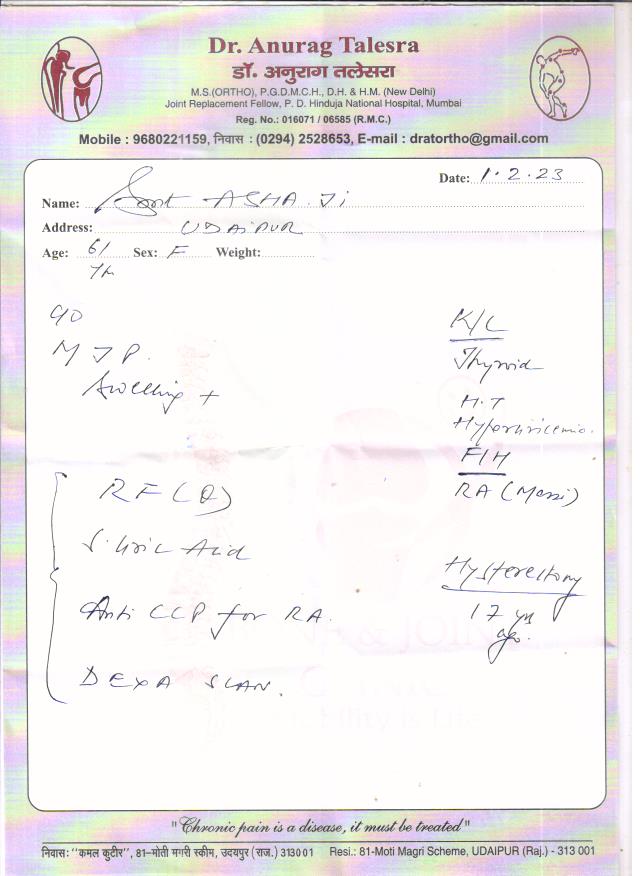 Dr. Anurag Talesra
डॉ. अनुराग तलेसरा
M.S.(ORTHO), P.G.D.M.C.H., D.H. & H.M. (New Delhi)
Joint Replacement Fellow, P. D. Hinduja National Hospital, Mumbai
Reg. No.: 016071 / 06585 (R.M.C.)
Mobile : 9680221159, निवास : (0294) 2528653, E-mail : dratortho@gmail.com
Date: 1.2.23
Name: Smt ASHA Ji
Address: UDAIPUR
Age: 61 Sex: F Weight:
Yr
C/O
M J P.
Swelling +
K/C
Thyroid
H.T
Hyperuricemia.
F/H
RA (Massi)
RF (Q)
S. Uric Acid
Anti CCP for RA.
DEXA SCAN.
Hysterectomy
17 yrs
ago.
& JOIN
CLINIC
bility is Life
"Chronic pain is a disease, it must be treated"
निवास: "कमल कुटीर", 81-मोती मगरी स्कीम, उदयपुर (राज.) 313001 Resi.: 81-Moti Magri Scheme, UDAIPUR (Raj.) - 313 001